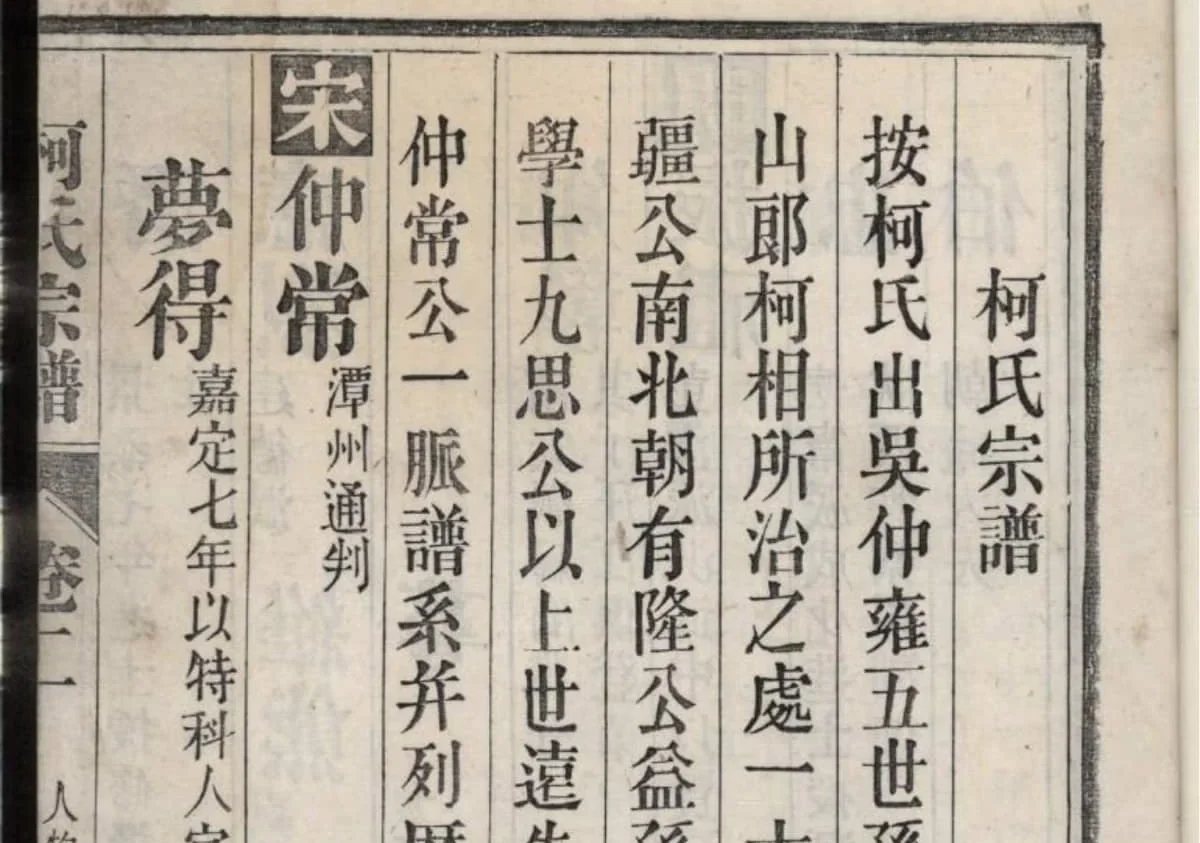 柯氏宗譜
按柯氏出吳仲雍五世孫
山郎柯相所治之處一
疆公南北朝有隆公益孫
學士九思公以上世遠
仲常公一脈譜系并列歷
宋仲常 潭州通判
夢得 嘉定七年以特科人
柯氏宗譜 卷二 人物